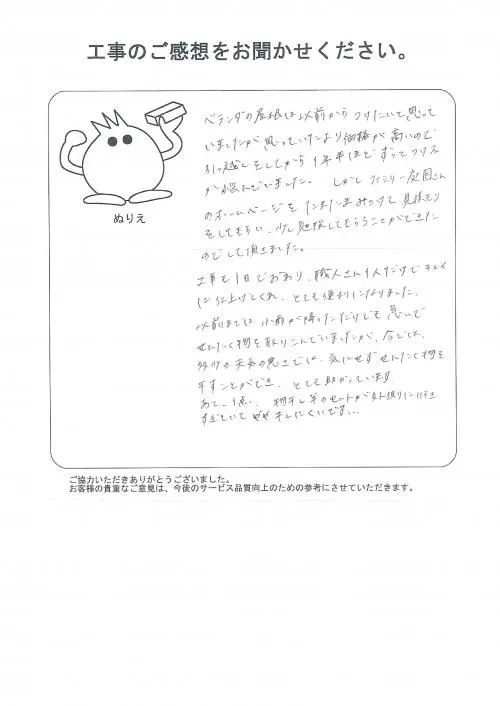 工事のご感想をお聞かせください。
ぬりえ
ベランダの屋根は以前からつけたいと思って
いましたが思っていたより価格が高いので
引っ越しをしてから1年半ほどずっとつけるか
が悩んでいました。しかしファミリー庭園さん
のホームページをたまたまみつけて見積もり
をしてもらい、少し勉強してもらうことができた
のでして頂きました。
工事も1日でおわり、職人さん1人だけでキレイ
に仕上げてくれ、とても便利になりました。
以前までは小雨が降っただけでも急いで
せんたく物を取りこんでいましたが、今では、
多少の天気の悪さでは、気にせずせんたく物を
干すことができ、とても助かっています
あと、1点、物干し竿のセットが外側に行き
すぎていて 干しにくいです…
ご協力いただきありがとうございました。
お客様の貴重なご意見は、今後のサービス品質向上のための参考にさせていただきます。